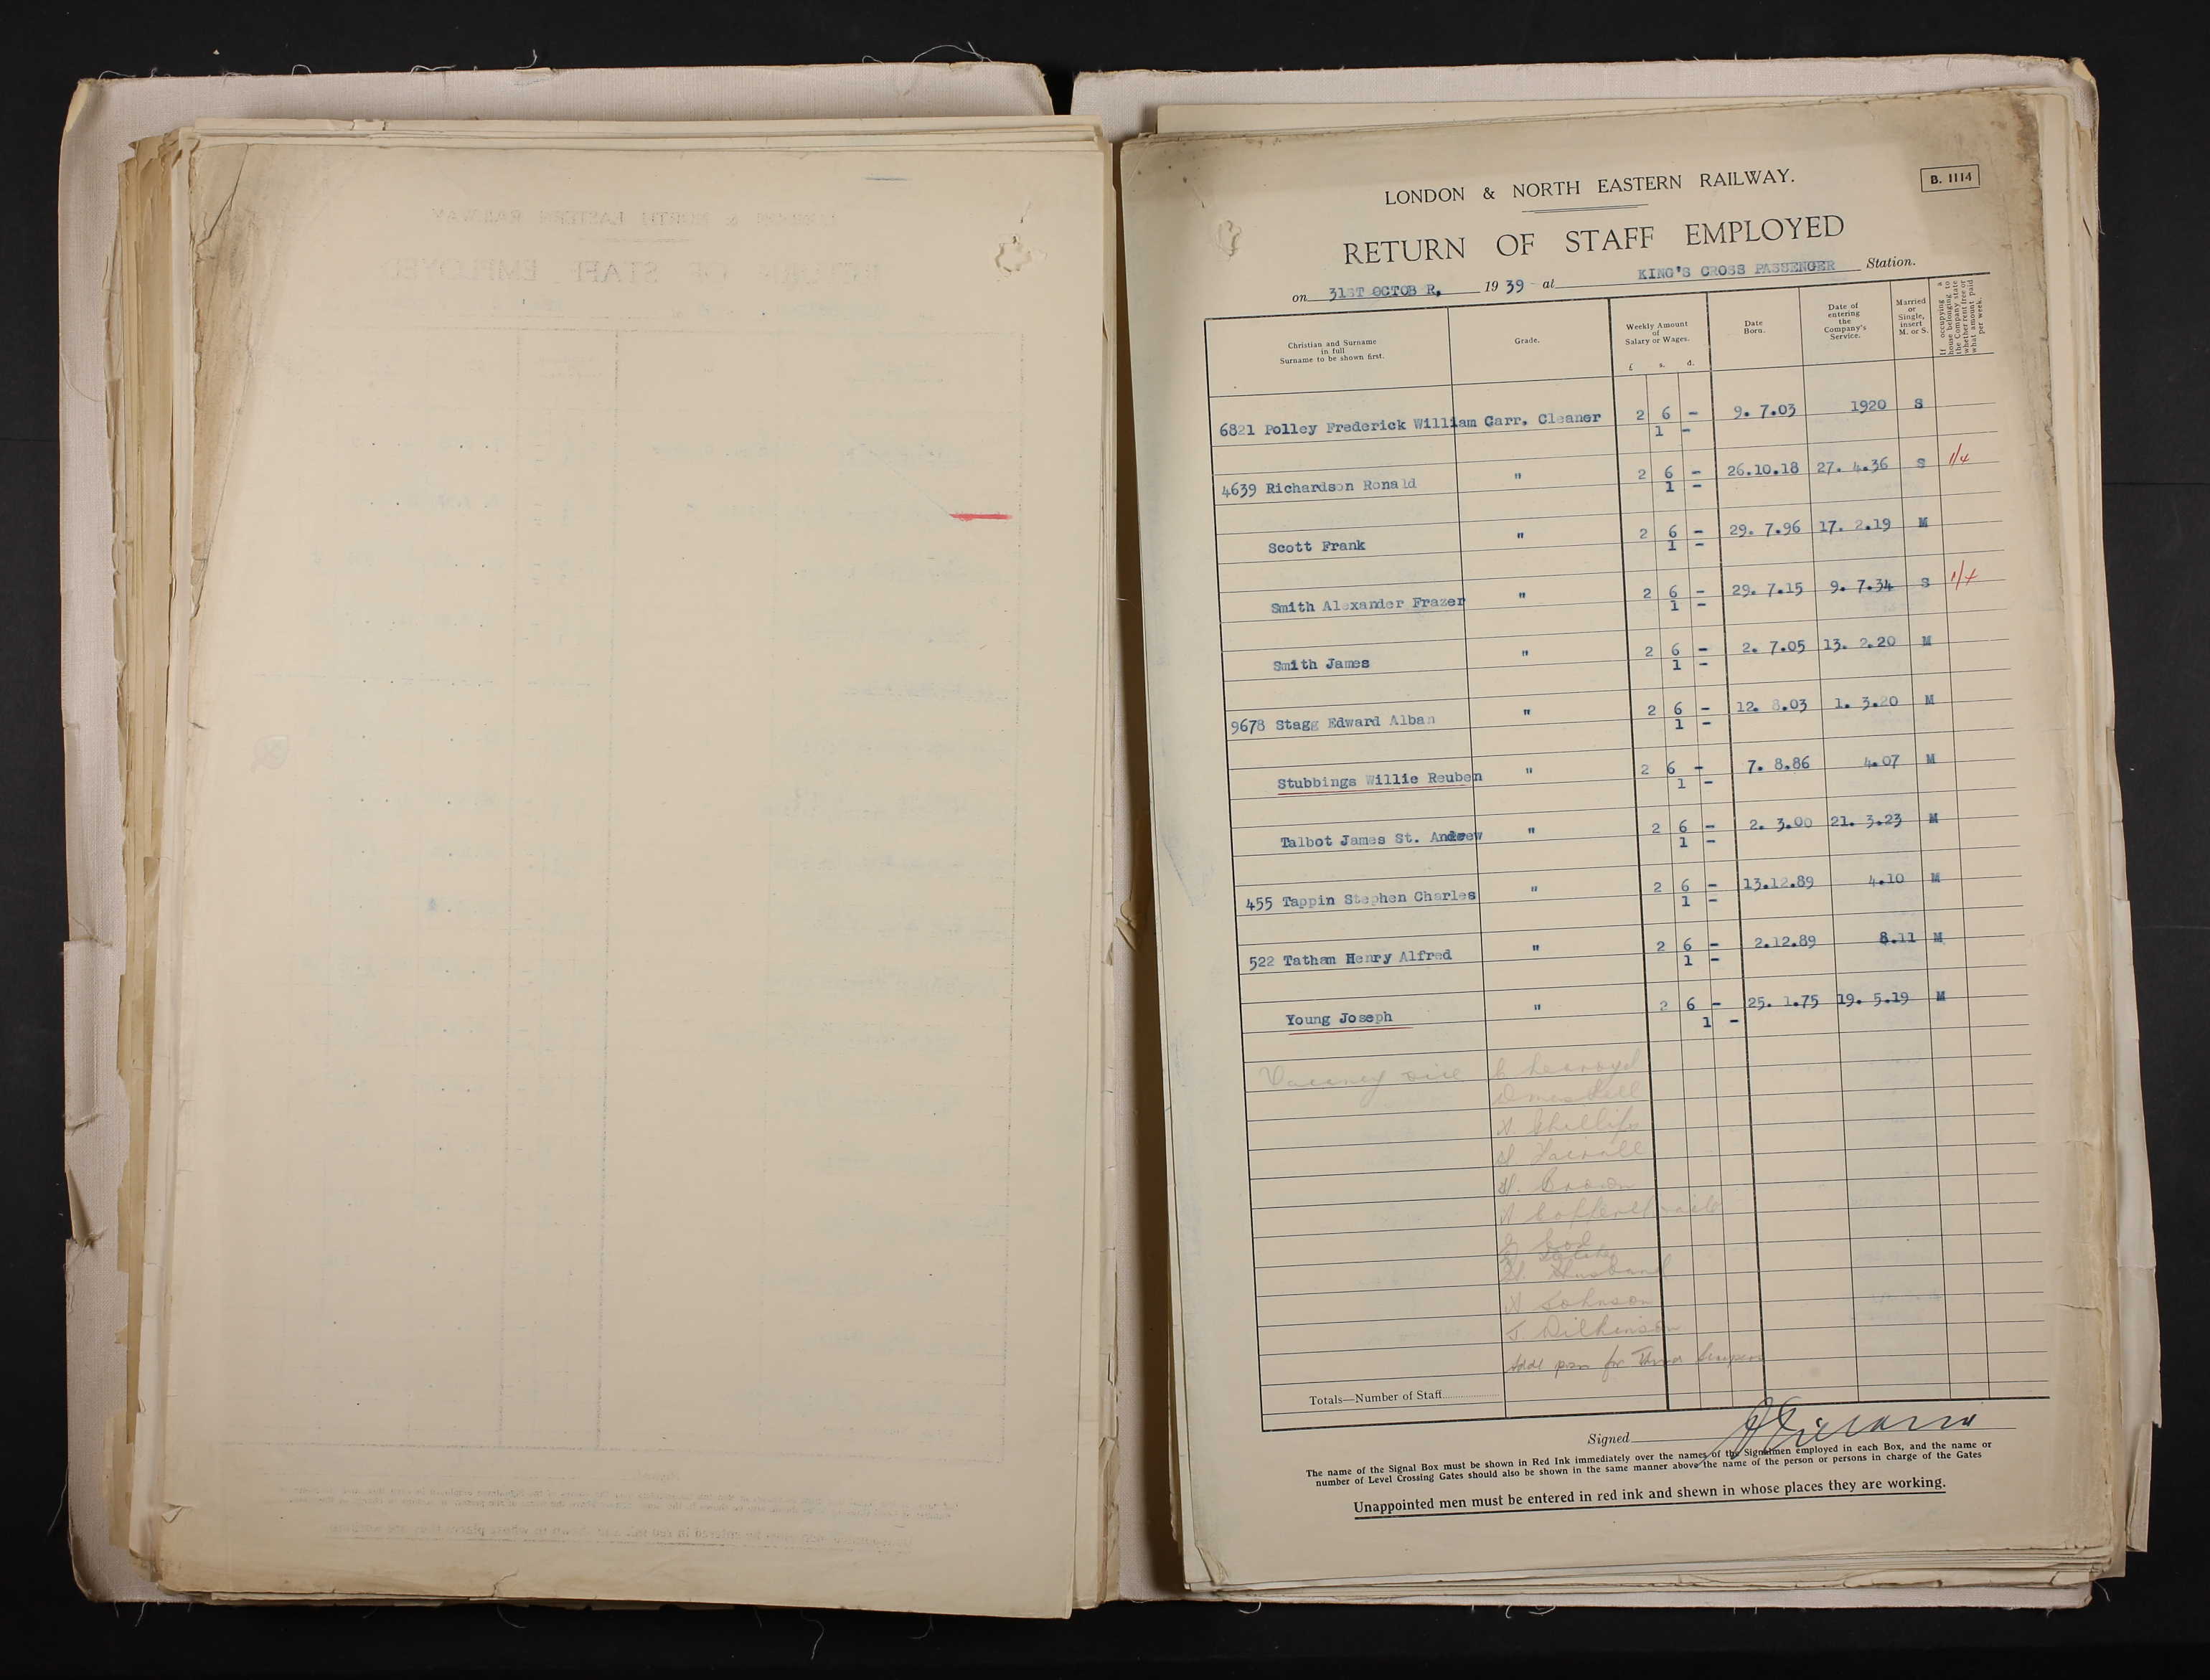 LONDON & NORTH EASTERN RAILWAY.
B. 1114
RETURN OF STAFF EMPLOYED
on 31ST OCTOB R, 19 39 - at KING'S CROSS PASSENGER Station.
Christian and Surname in full Surname to be shown first.
Grade.
Weekly Amount of Salary or Wages.
£ s. d.
Date Born.
Date of entering the Company's Service.
Married or Single, insert M. or S.
If occupying a house belonging to the Company state whether rent free or what amount paid per week.
6821 Polley Frederick William Carr. Cleaner 2 6 - 9. 7.03 1920 S
1 -
4639 Richardson Ronald " 2 6 - 26.10.18 27. 4.36 S 1/4
1 -
Scott Frank " 2 6 - 29. 7.96 17. 2.19 M
1 -
Smith Alexander Frazer " 2 6 - 29. 7.15 9. 7.34 S 1/4
1 -
Smith James " 2 6 - 2. 7.05 13. 2.20 M
1 -
9678 Stagg Edward Alban " 2 6 - 12. 8.03 1. 3.20 M
1 -
Stubbings Willie Reuben " 2 6 - 7. 8.86 4.07 M
1 -
Talbot James St. Andrew " 2 6 - 2. 3.00 21. 3.23 M
1 -
455 Tappin Stephen Charles " 2 6 - 13.12.89 4.10 M
1 -
522 Tatham Henry Alfred " 2 6 - 2.12.89 8.11 M
1 -
Young Joseph " 2 6 - 25. 1.75 19. 5.19 M
1 -
Vacancy vice
Phillips
Fairall
H. Brown
Copperthwaite
H. Husband
A Johnson
Dilkinson
Addl posn for
Totals—Number of Staff
Signed
The name of the Signal Box must be shown in Red Ink immediately over the names of the Signalmen employed in each Box, and the name or
number of Level Crossing Gates should also be shown in the same manner above the name of the person or persons in charge of the Gates
Unappointed men must be entered in red ink and shewn in whose places they are working.